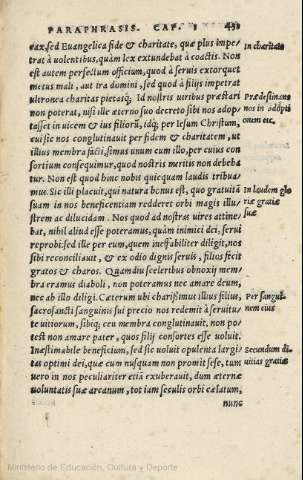 PARAPHRASIS. CAP. I
eax, sed Euangelica fide & charitate, quæ plus impe-
trat à uolentibus, quàm lex extundebat à coactis. Non
est autem perfectum officium, quod à seruis extorquet
metus mali, aut tra domini, sed quod à filijs impetrat
ultronea charitas pietasq́;. Id nostris uiribus præstari
non poterat, nisi ille æterno suo decreto sibi nos adop-
tasset in uicem & ius filiorũ, idq́; per Iesum Christum,
cui sic nos conglutinauit per fidem & charitatem, ut
illius membra facti, simus unum cum illo, per cuius con
sortium consequimur, quod nostris meritis non debeba
tur. Non est quod hinc nobis quicquam laudis tribua-
mus. Sic illi placuit, qui natura bonus est, quo gratuitā
suam in nos beneficentiam redderet orbi magis illu-
strem ac dilucidam. Nos quod ad nostras uires attine
bat, nihil aliud esse poteramus, quàm inimici dei, serui
reprobi: sed ille per eum, quem ineffabiliter diligit, nos
sibi reconciliauit, & ex odio dignis seruis, filios fecit
gratos & charos. Quamdiu sceleribus obnoxij mem-
bra eramus diaboli, non poteramus nec amare deum,
nec ab illo deligi. Cæterum ubi charissimus illius filius,
sacrosancti sanguinis sui precio nos redemit à seruitu-
te uitiorum, sibiq́; ceu membra conglutinauit, non po-
test non amare pater, quos filij consortes esse uoluit.
Inæstimabile beneficium, sed sic uoluit opulenta largi
tas optimi dei, quæ cum nusquam non promit sese, tum
uero in nos peculiariter etiā exuberauit, dum æternæ
uoluntatis suæ arcanum, tot iam seculis orbi cælatum,
nunc
in charitate
Prædestinans
nos in adopti
onem etc.
In laudem glo
riæ gratiæ
suæ
Per sangui
nem eius
Secundum di
uitias gratiæ
Ministerio de Educación, Cultura y Deporte